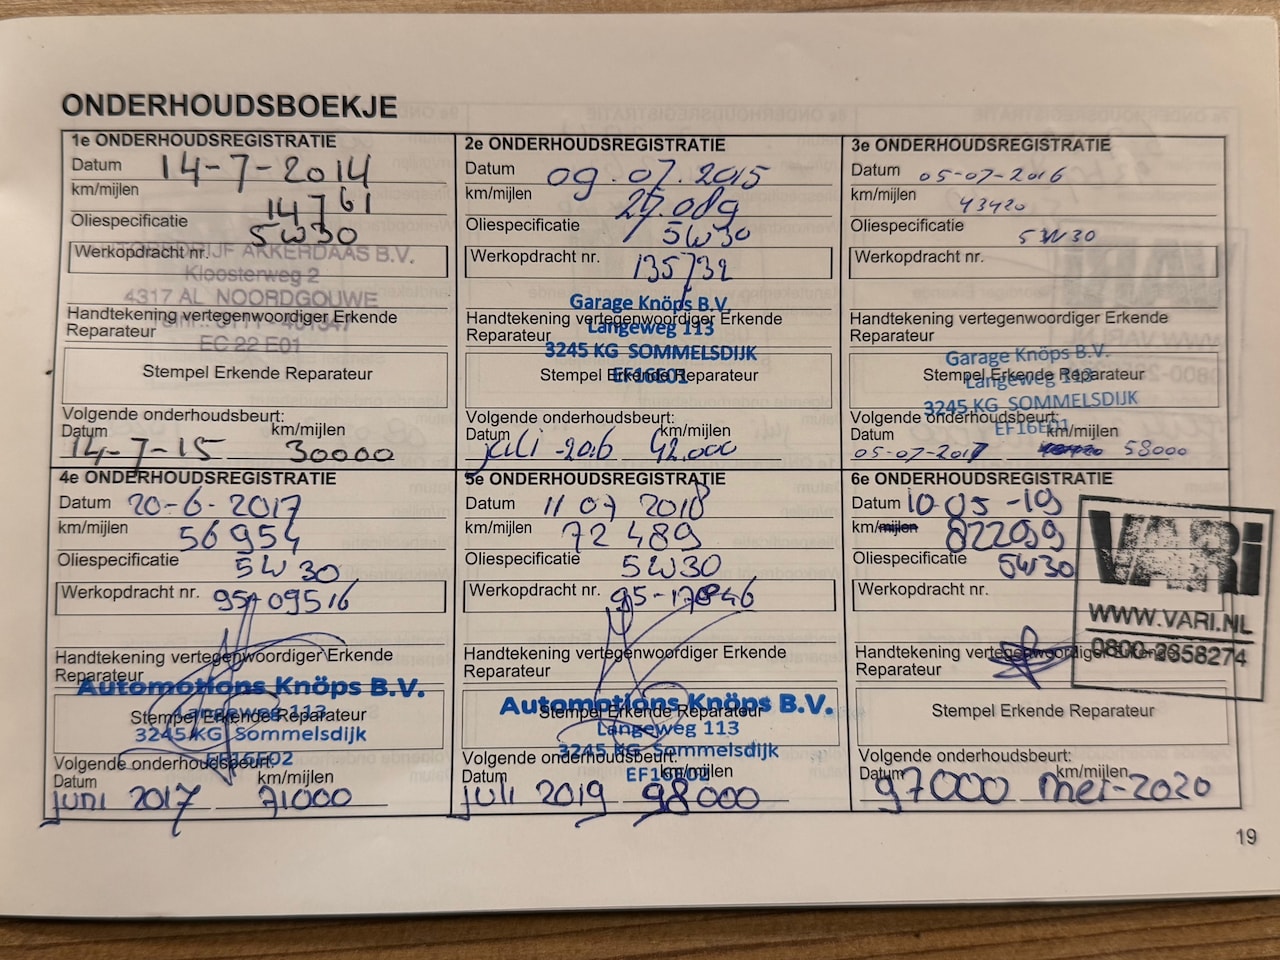 ONDERHOUDSBOEKJE
1e ONDERHOUDSREGISTRATIE
Datum 14-7-2014
km/mijlen 14761
Oliespecificatie 5W30
Werkopdracht nr.
AKKERDAAS B.V.
Kloosterweg 2
4317 AL NOORDGOUWE
Handtekening vertegenwoordiger Erkende
Reparateur
EC 22 E01
Stempel Erkende Reparateur
Volgende onderhoudsbeurt:
Datum km/mijlen
14-7-15 30000
2e ONDERHOUDSREGISTRATIE
Datum 09.07.2015
km/mijlen 27.089
Oliespecificatie 5W30
Werkopdracht nr. 135732
Garage Knöps B.V.
Handtekening vertegenwoordiger Erkende
Reparateur
Langeweg 113
3245 KG SOMMELSDIJK
Stempel Erkende Reparateur
EF16E01
Volgende onderhoudsbeurt:
Datum km/mijlen
juli -2016 42.000
3e ONDERHOUDSREGISTRATIE
Datum 05-07-2016
km/mijlen 43420
Oliespecificatie 5W30
Werkopdracht nr.
Handtekening vertegenwoordiger Erkende
Reparateur
Garage Knöps B.V.
Stempel Erkende Reparateur
Langeweg 113
3245 KG SOMMELSDIJK
Volgende onderhoudsbeurt:
EF16E01
Datum km/mijlen
05-07-2017 58000
4e ONDERHOUDSREGISTRATIE
Datum 20-6-2017
km/mijlen 56954
Oliespecificatie 5W30
Werkopdracht nr. 95-09516
Handtekening vertegenwoordiger Erkende
Reparateur
Automotions Knöps B.V.
Langeweg 113
Stempel Erkende Reparateur
3245 KG Sommelsdijk
EF16E02
Volgende onderhoudsbeurt:
Datum km/mijlen
juni 2017 71000
5e ONDERHOUDSREGISTRATIE
Datum 11 07 2018
km/mijlen 72489
Oliespecificatie 5W30
Werkopdracht nr.
Handtekening vertegenwoordiger Erkende
Reparateur
Automotions Knöps B.V.
Stempel Erkende Reparateur
Langeweg 113
3245 KG Sommelsdijk
Volgende onderhoudsbeurt:
EF16E02
Datum km/mijlen
juli 2019 98000
6e ONDERHOUDSREGISTRATIE
Datum 10-05-19
km/mijlen 822099
Oliespecificatie 5W30
Werkopdracht nr.
VARI
WWW.VARI.NL
0800-2358274
Handtekening vertegenwoordiger Erkende
Reparateur
Stempel Erkende Reparateur
Volgende onderhoudsbeurt:
Datum km/mijlen
97000 mei-2020
19